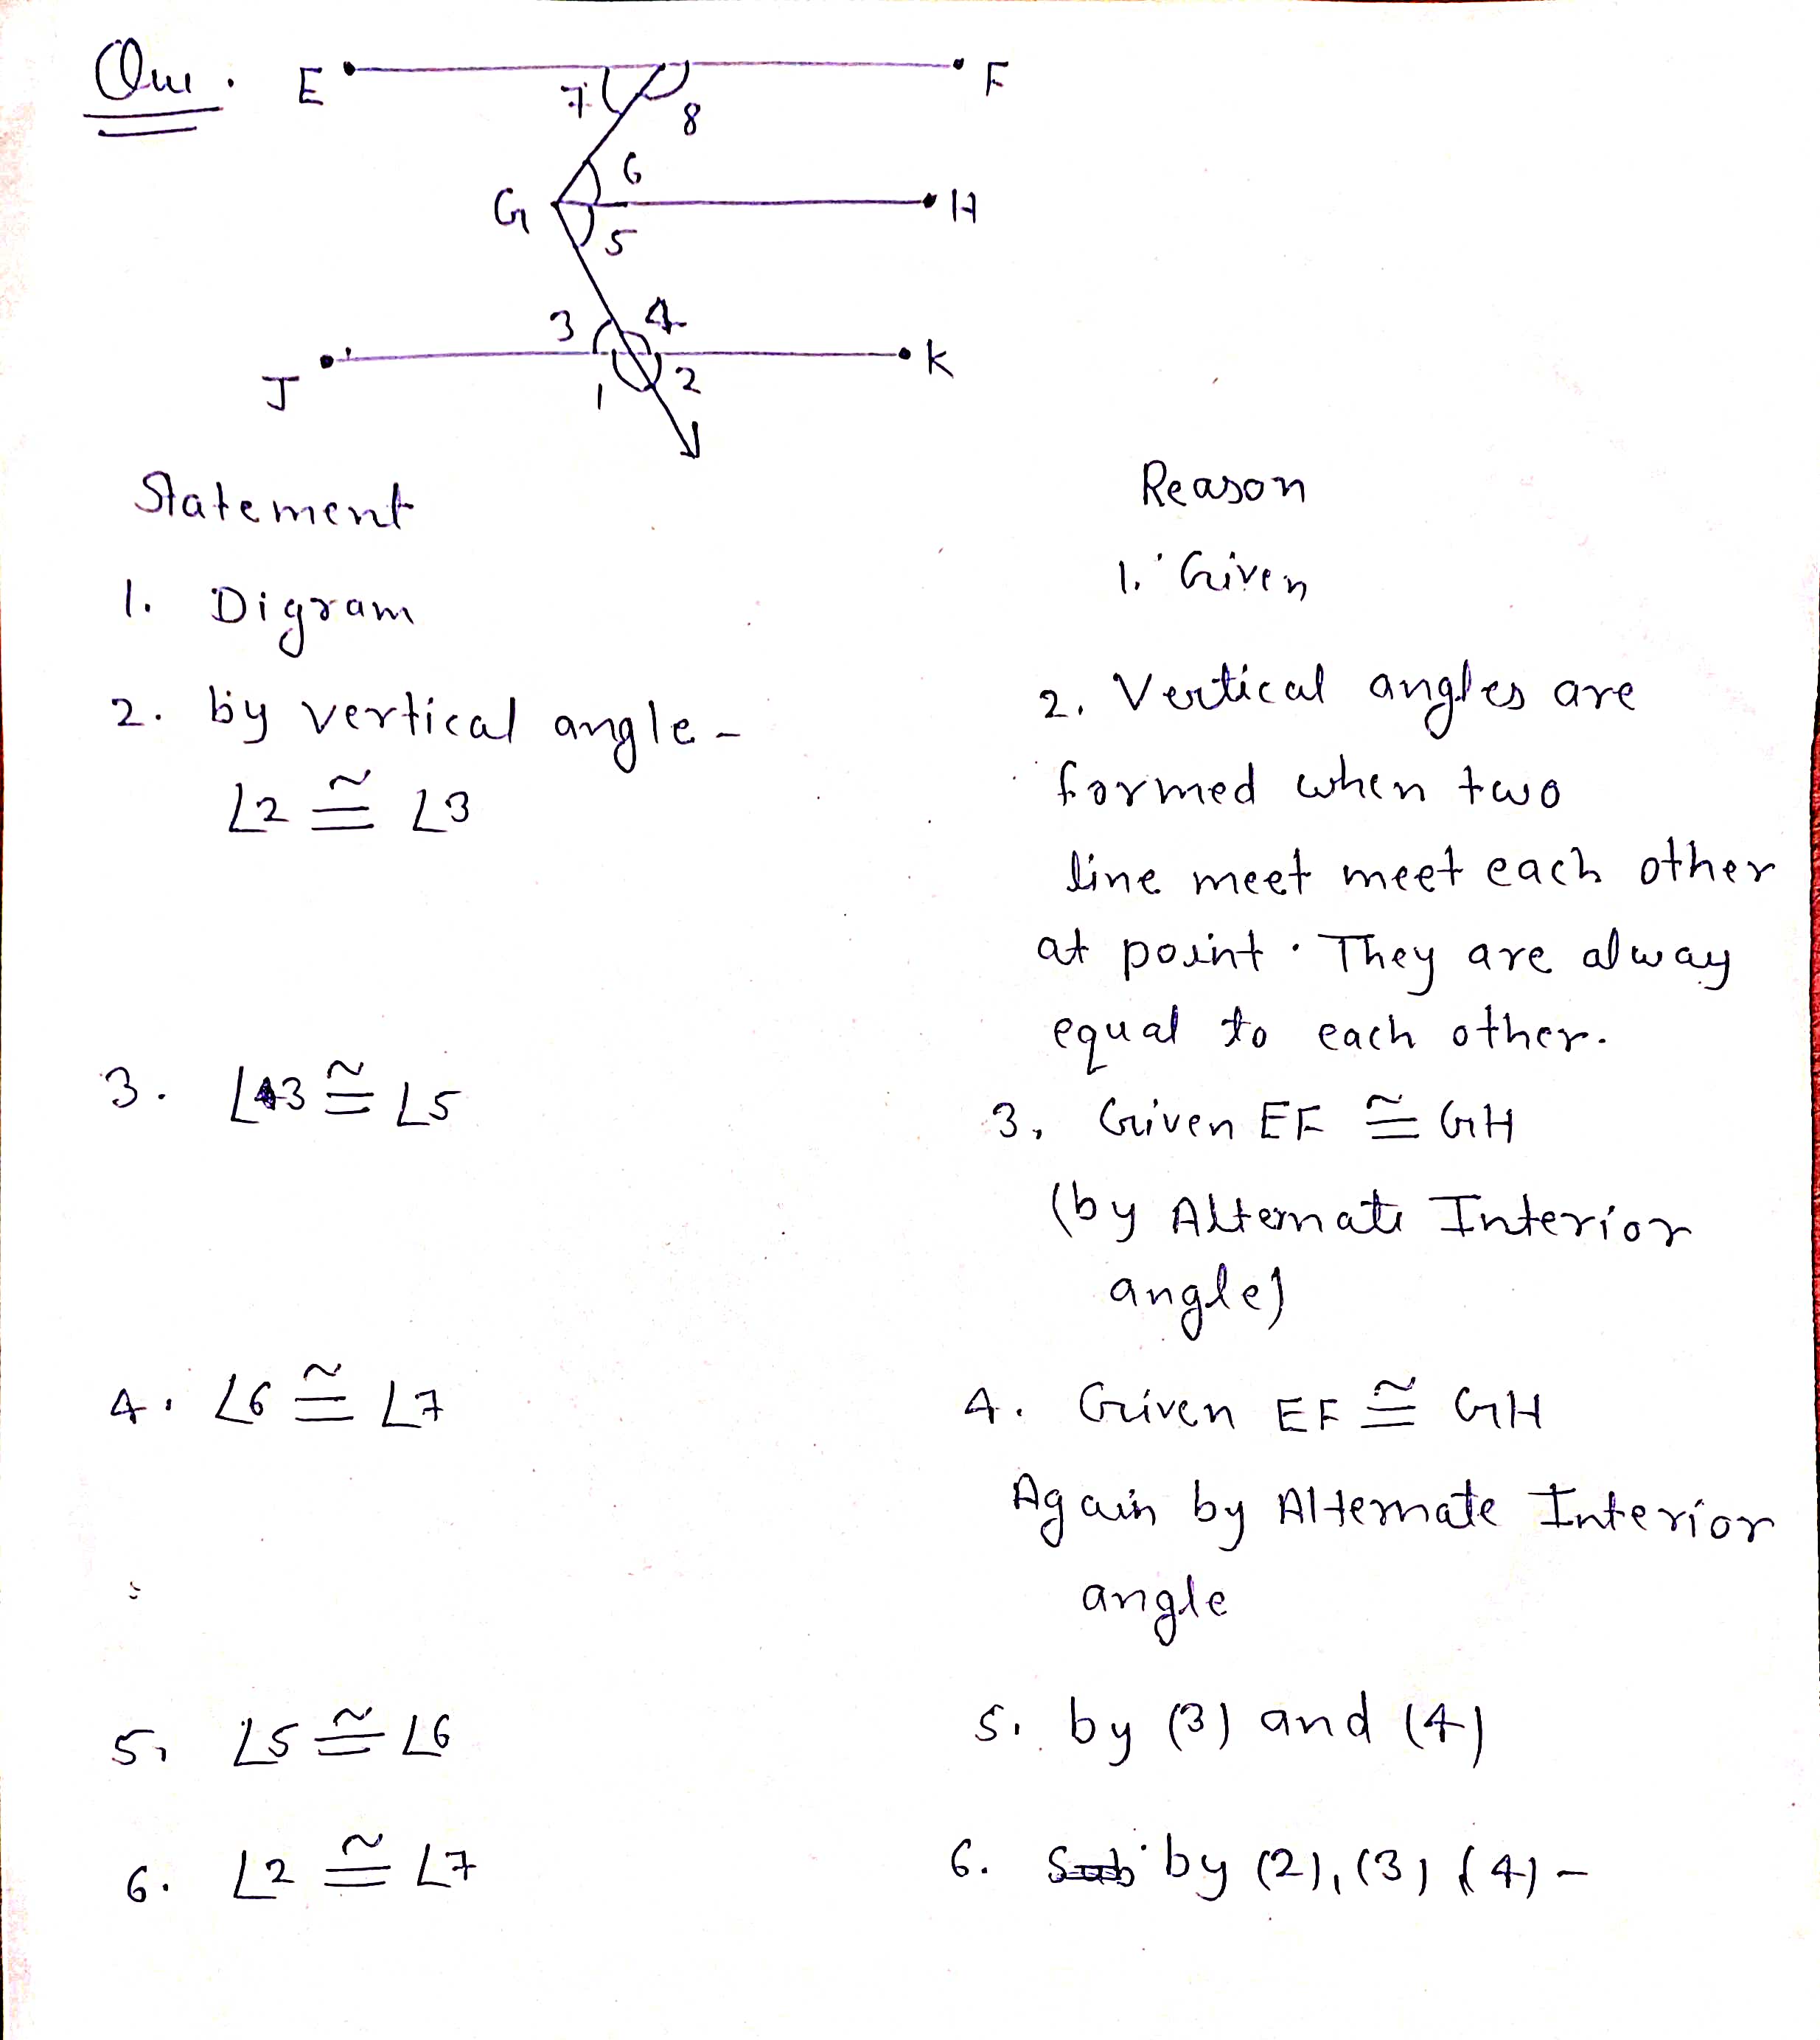 Que.
E F
7 8
6
G H
5
3 4
J K
1 2
Statement Reason
1. Digram 1. Given
2. by vertical angle - 2. Vertical angles are
∠2 ≅ ∠3 formed when two
line meet meet each other
at point. They are alway
equal to each other.
3. ∠3 ≅ ∠5 3, Given EF ≅ GH
(by Alternate Interior
angle)
4. ∠6 ≅ ∠7 4. Given EF ≅ GH
Again by Alternate Interior
angle
5, ∠5 ≅ ∠6 5. by (3) and (4)
6. ∠2 ≅ ∠7 6. by (2), (3) (4) -